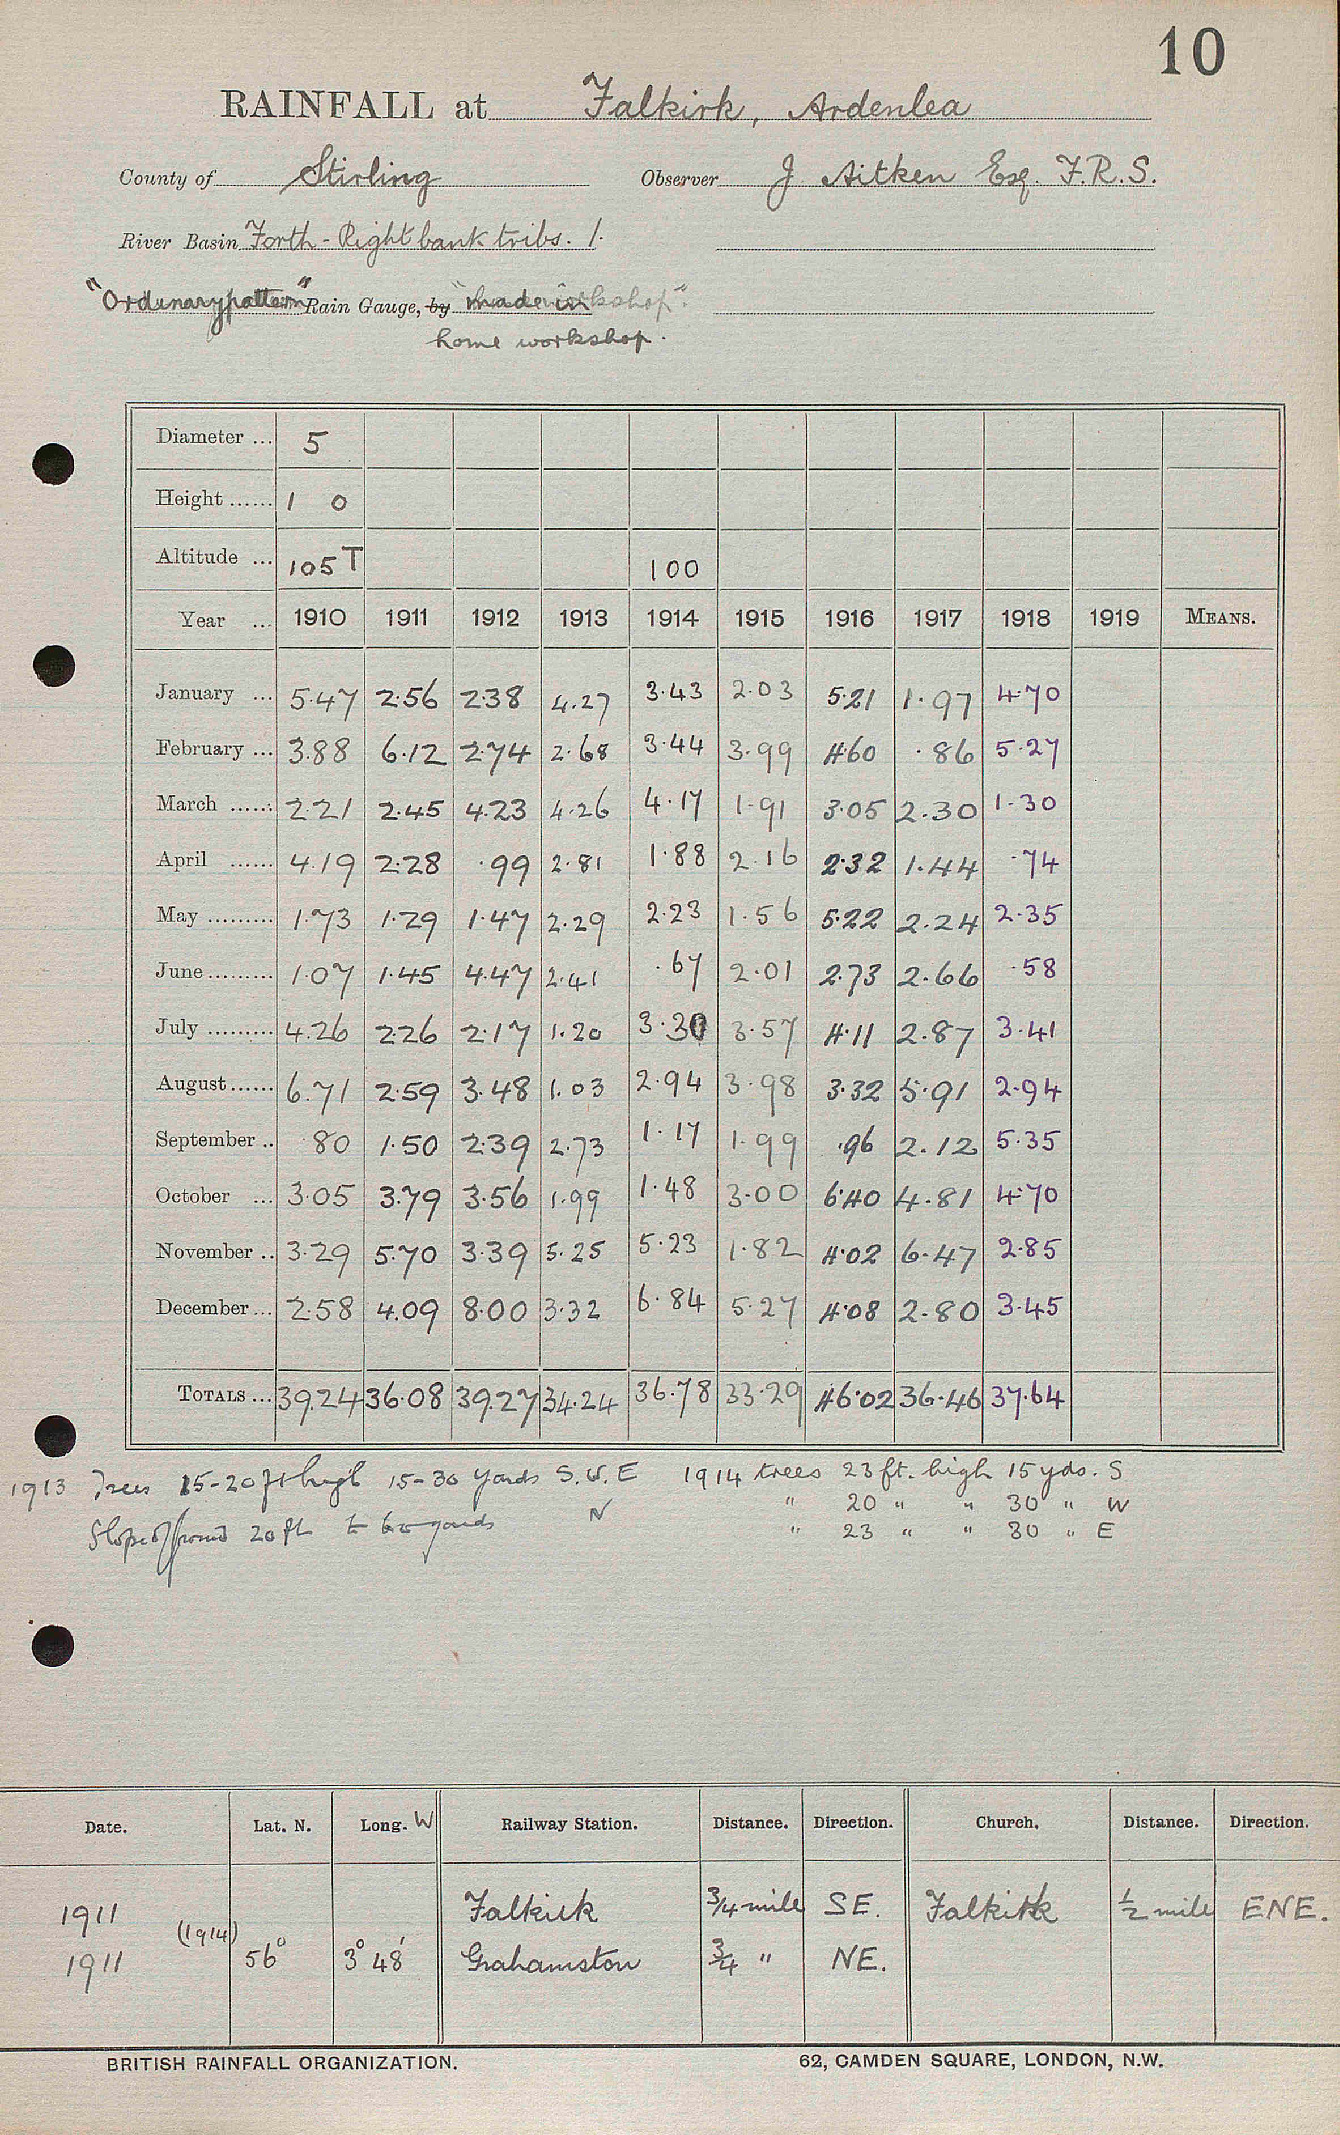 10
RAINFALL at Falkirk, Ardenlea
County of Stirling Observer J Aitken Esq. F.R.S.
River Basin Forth - Right bank tribs. 1.
"Ordinary pattern" Rain Gauge, by "made in workshop".
home workshop.
Diameter ... 5
Height ...... 1 0
Altitude ... 105 T 100
Year ... 1910 1911 1912 1913 1914 1915 1916 1917 1918 1919 MEANS.
January ... 5.47 2.56 2.38 4.27 3.43 2.03 5.21 1.97 4.70
February ... 3.88 6.12 2.74 2.68 3.44 3.99 4.60 .86 5.27
March ...... 2.21 2.45 4.23 4.26 4.17 1.91 3.05 2.30 1.30
April ...... 4.19 2.28 .99 2.81 1.88 2.16 2.32 1.44 .74
May ......... 1.73 1.29 1.47 2.29 2.23 1.56 5.22 2.24 2.35
June ......... 1.07 1.45 4.47 2.41 .67 2.01 2.73 2.66 .58
July ......... 4.26 2.26 2.17 1.20 3.30 3.57 4.11 2.87 3.41
August ...... 6.71 2.59 3.48 1.03 2.94 3.98 3.32 5.91 2.94
September .. .80 1.50 2.39 2.73 1.17 1.99 .96 2.12 5.35
October ... 3.05 3.79 3.56 1.99 1.48 3.00 6.40 4.81 4.70
November .. 3.29 5.70 3.39 5.25 5.23 1.82 4.02 6.47 2.85
December ... 2.58 4.09 8.00 3.32 6.84 5.27 4.08 2.80 3.45
TOTALS ... 39.24 36.08 39.27 34.24 36.78 33.29 46.02 36.46 37.64
1913 Trees 15-20 ft high 15-30 yards S.W.E 1914 trees 23 ft. high 15 yds. S
" 20 " " 30 " W
Slope of ground 20 ft to 60 yards N
" 23 " " 30 " E
Date. Lat. N. Long. W Railway Station. Distance. Direction. Church. Distance. Direction.
1911 Falkirk 3/4 mile SE. Falkirk 1/2 mile ENE.
(1914)
1911 56° 3° 48' Grahamston 3/4 " NE.
BRITISH RAINFALL ORGANIZATION. 62, CAMDEN SQUARE, LONDON, N.W.